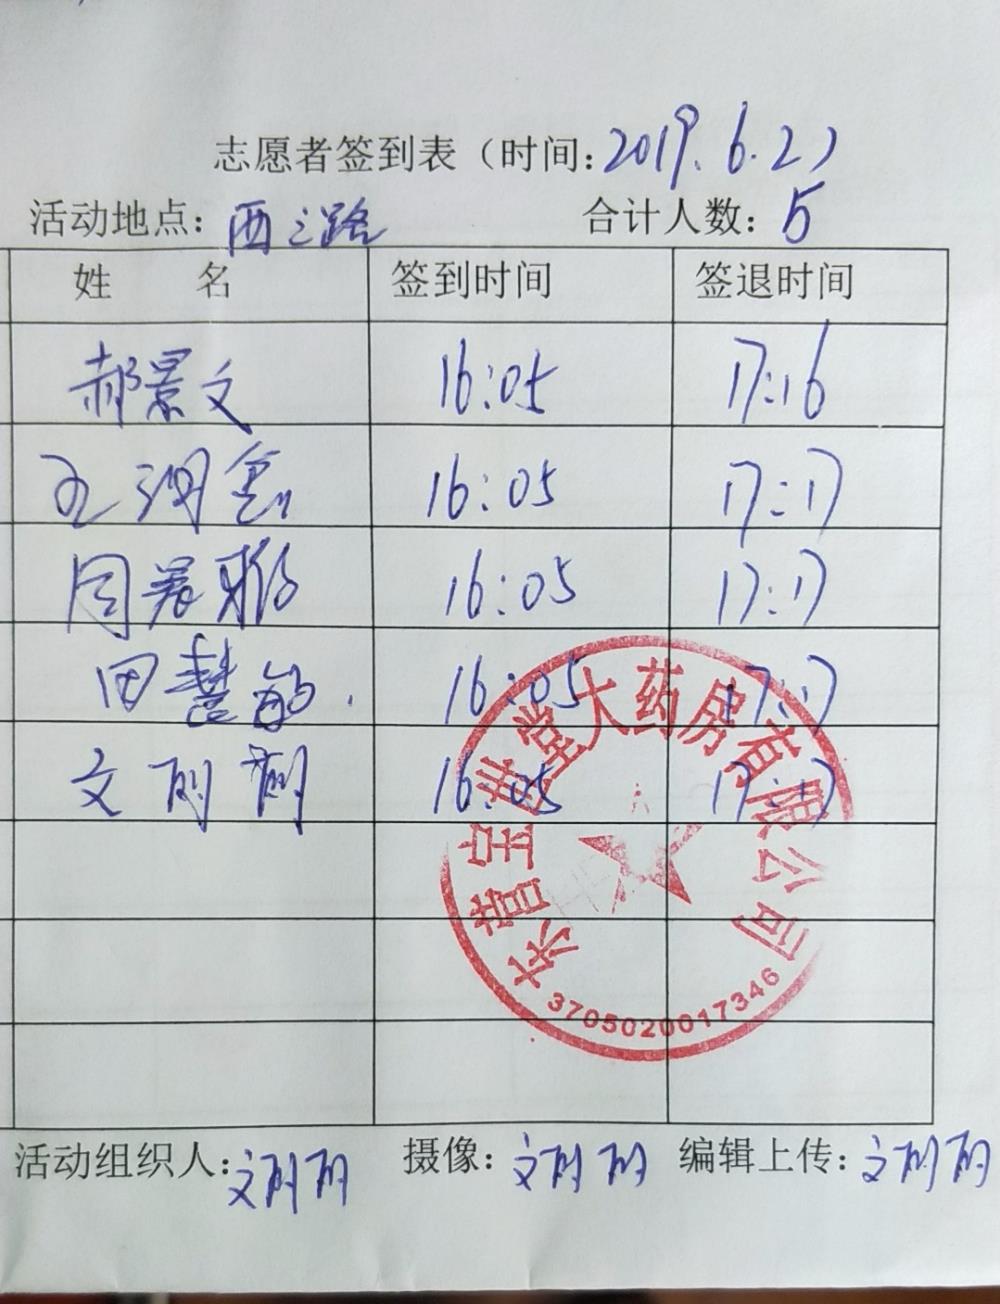 志愿者签到表（时间:2019.6.27
活动地点: 西三路 合计人数: 5
姓 名 签到时间 签退时间
郝景文 16:05 17:16
16:05 17:17
周晨雅 16:05 17:17
田慧敏 16:05 17:17
文丽丽 16:05 17:17
东营宝芝堂大药房有限公司
3705020017346
活动组织人: 文丽丽 摄像: 文丽丽 编辑上传: 文丽丽